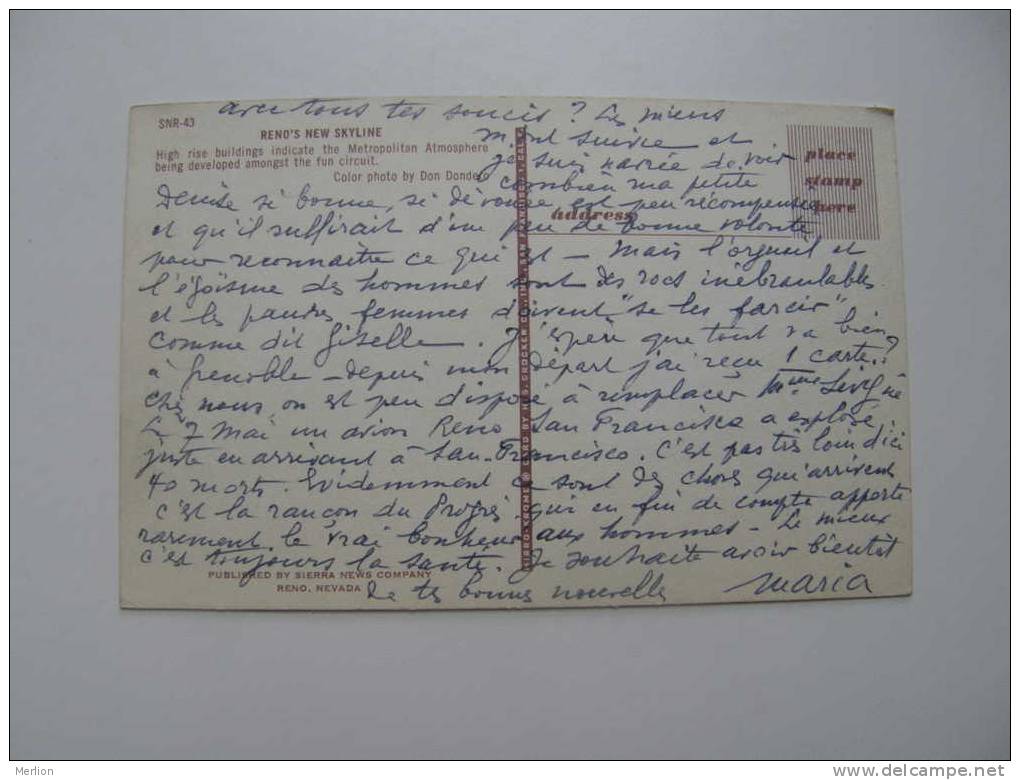 avec tous tes soucis ? Les miens
SNR-43
RENO'S NEW SKYLINE
High rise buildings indicate the Metropolitan Atmosphere
being developed amongst the fun circuit.
Color photo by Don Dondero
place
stamp
here
address
m'ont suivie et
je suis navrée de voir
combien ma petite
Denise si bonne, si dévouée est peu récompensée
et qu'il suffirait d'un peu de bonne volonté
pour reconnaitre ce qui est — Mais l'orgueil et
l'égoïsme des hommes sont des rocs inébranlables
et les pauvres femmes doivent "se les farcir"
comme dit Giselle. J'espère que tout va bien
à Grenoble – depuis mon départ j'ai reçu 1 carte ?
chez nous, on est peu disposé à remplacer Mme Sévigné
Le 7 Mai un avion Reno San Francisco a explosé
juste en arrivant à San-Francisco. C'est pas très loin d'ici
40 morts. Evidemment ce sont des choses qui arrivent
c'est la rançon du Progrès qui en fin de compte apporte
rarement le vrai bonheur aux hommes – Le mieux
c'est toujours la santé. Je souhaite avoir bientôt
de tes bonnes nouvelles
Maria
PUBLISHED BY SIERRA NEWS COMPANY
RENO, NEVADA
MIRRO-KROME ® CARD BY H.S. CROCKER CO., INC., SAN FRANCISCO 1, CALIF.
Merlion
delcampe.net